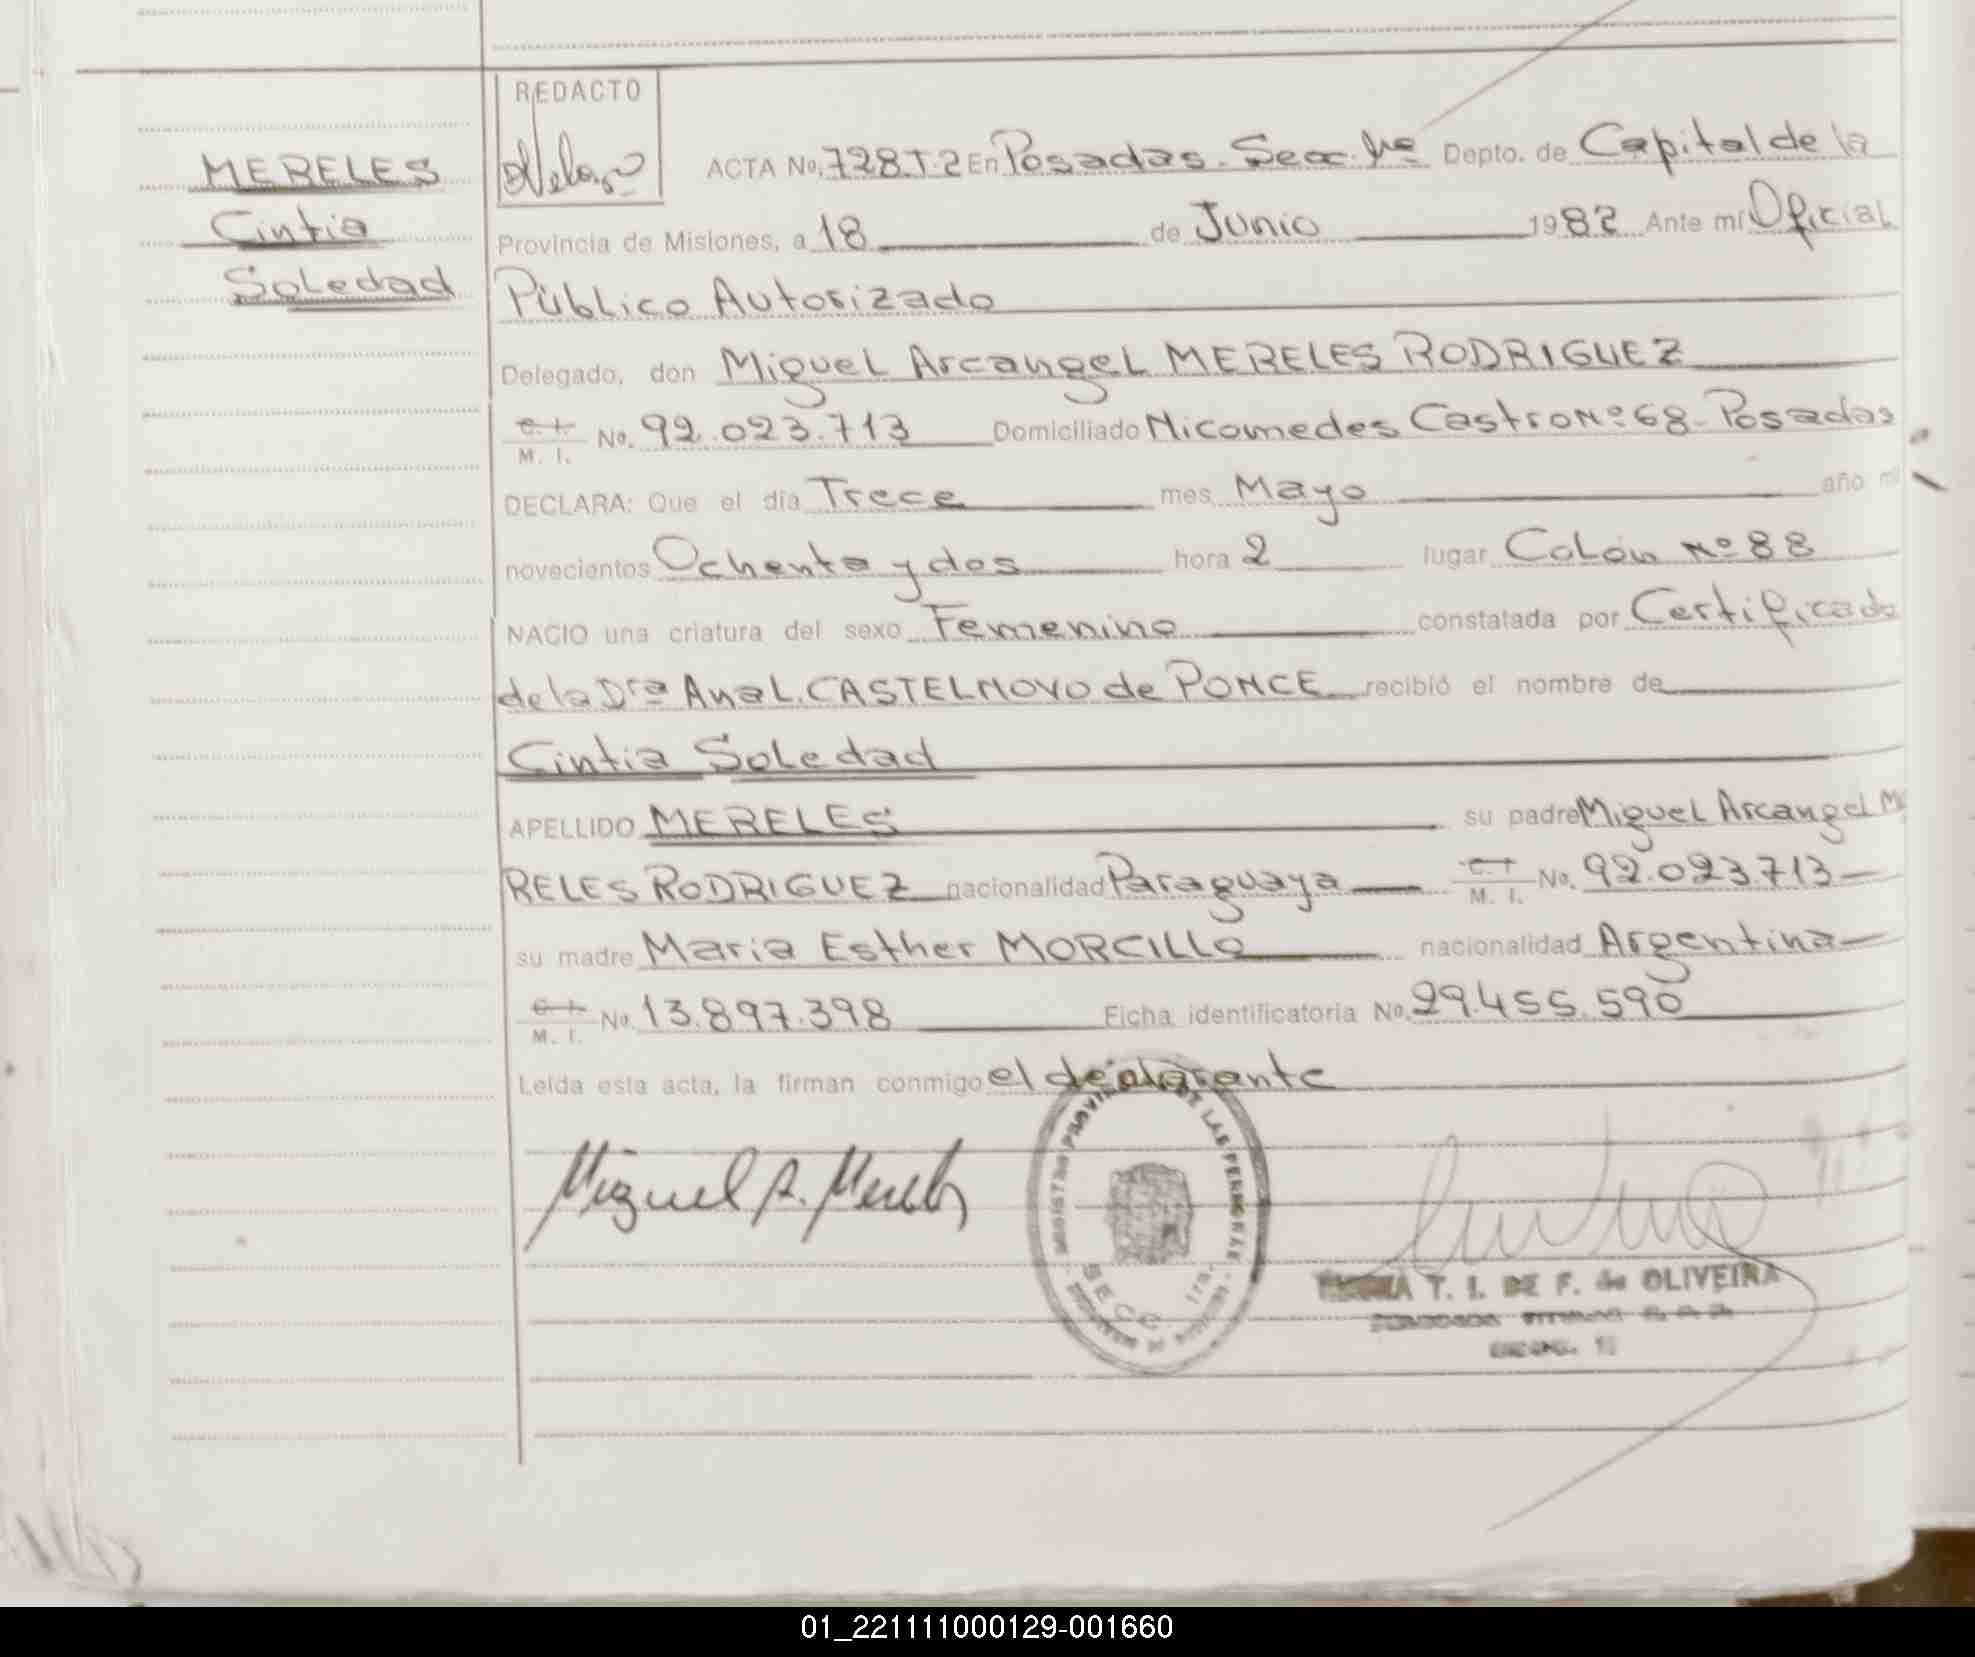 REDACTO
MERELES
Cintia
Soledad
ACTA No. 728.T.2 En Posadas. Secc. 1ra Depto. de Capital de la
Provincia de Misiones, a 18 de Junio 1982 Ante mí Oficial
Público Autorizado
Delegado, don Miguel Arcangel MERELES RODRIGUEZ
C. I.
M. I. No. 92.023.713 Domiciliado Nicomedes Castro Nº 68 - Posadas
DECLARA: Que el día Trece mes Mayo año mil
novecientos Ochenta y dos hora 2 lugar Colón Nº 88
NACIO una criatura del sexo Femenino constatada por Certificado
de la Dra Ana L. CASTELNOVO de PONCE recibió el nombre de
Cintia Soledad
APELLIDO MERELES su padre Miguel Arcangel ME
RELES RODRIGUEZ nacionalidad Paraguaya C. I.
M. I. No. 92.023.713
su madre Maria Esther MORCILLO nacionalidad Argentina
C. I.
M. I. No. 13.897.398 Ficha identificatoria No. 29.455.590
Leída esta acta, la firman conmigo el declarante
Miguel A. Mereles
PROVINCIAL DE LAS PERSONAS
SECC. 1ra.
T. I. DE F. de OLIVEIRA
01_221111000129-001660